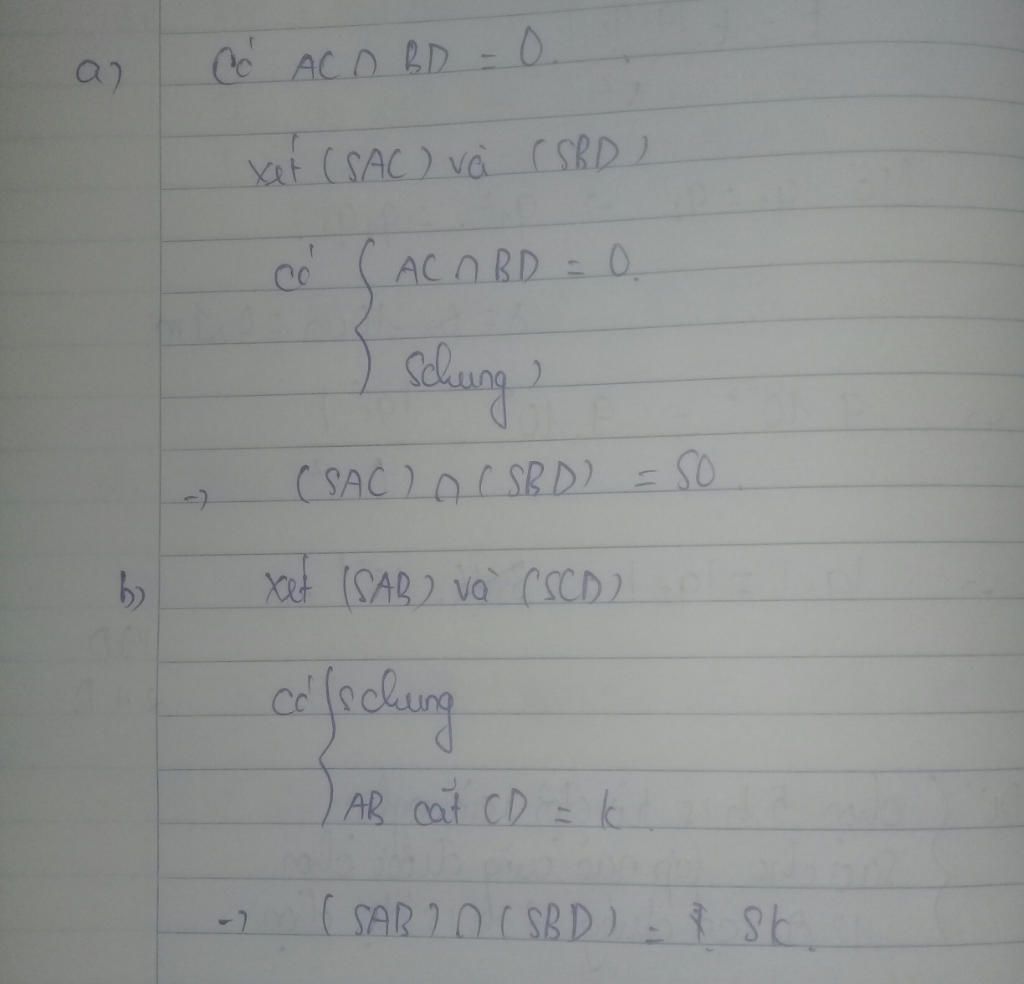 a) Có AC ∩ BD = O.
xét (SAC) và (SBD)
Có { AC ∩ BD = O.
S chung
=> (SAC) ∩ (SBD) = SO.
b) xét (SAB) và (SCD)
có { S chung
AB cắt CD = k.
=> (SAB) ∩ (SBD) = Sk.